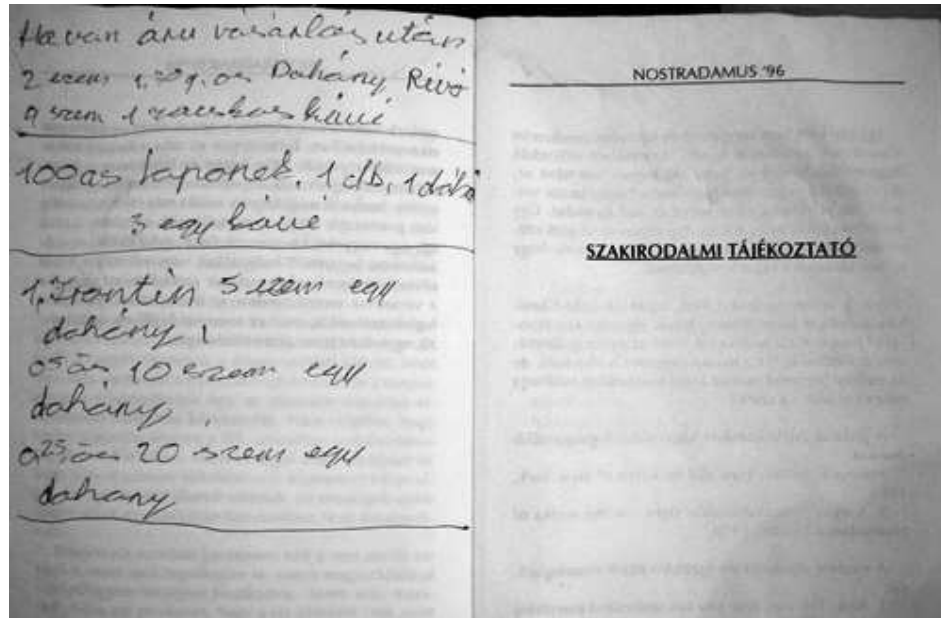 Ha van áru vásárlás után
2 szem 1, 20 g. os Dohány, Rívó
a szem 1 zacskós kávé
100 as laponék, 1 db, 1 dobi
3 egy kávé
1, Frontin 5 szem egy
dohány,
05 ös 10 szem egy
dohány
0,25 ös 20 szem egy
dohany
NOSTRADAMUS '96
SZAKIRODALMI TÁJÉKOZTATÓ